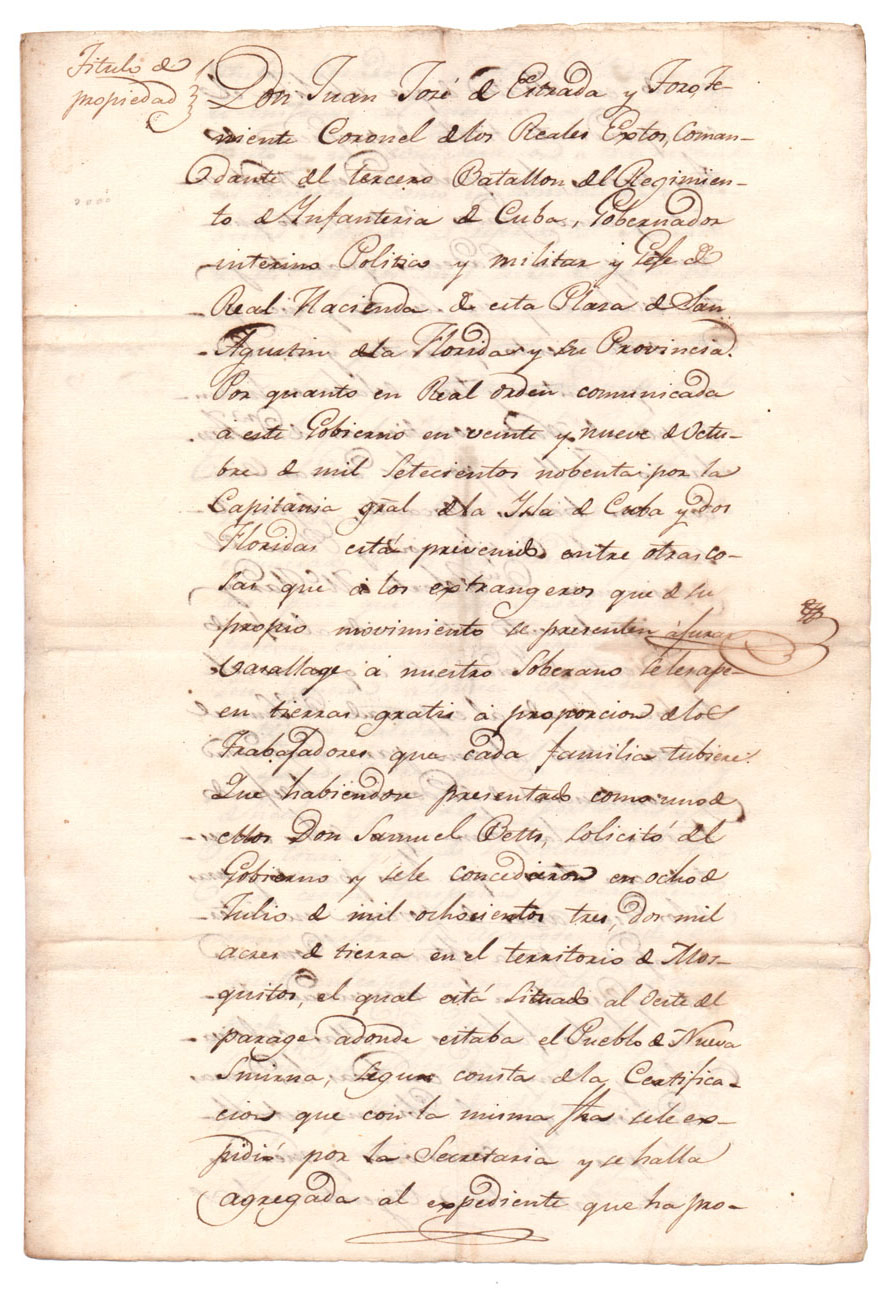 Titulo de
propiedad
Don Juan José de Estrada y Toro, Te-
niente Coronel de los Reales Extos, Coman-
dante del tercero Batallon del Regimien-
to de Infanteria de Cuba, Gobernador
interino Politico y militar y Gefe de
Real Hacienda de esta Plaza de San
Agustin de la Florida y su Provincia.
Por quanto en Real orden comunicada
a este Gobierno en veinte y nueve de Octu-
bre de mil setecientos nobenta por la
Capitania gral de la Isla de Cuba y dos
Floridas está prevenido entre otras co-
sas que á los extrangeros que de su
propio movimiento se presenten á jurar
vasallage á nuestro Soberano se les
en tierras gratis á proporcion de los
trabajadores que cada familia tubiere.
Que habiendose presentado como uno de
ellos Don Samuel Betts, solicitó del
Gobierno y se le concedieron en ocho de
Julio de mil ochocientos tres, dos mil
acres de tierra en el territorio de Mos-
quitos, el qual está situado al Oeste del
parage adonde estaba el Pueblo de Nueva
Smirna, segun consta de la Certifica-
cion que con la misma fha se le ex-
pidió por la Secretaria y se halla
agregada al expediente que ha pro-